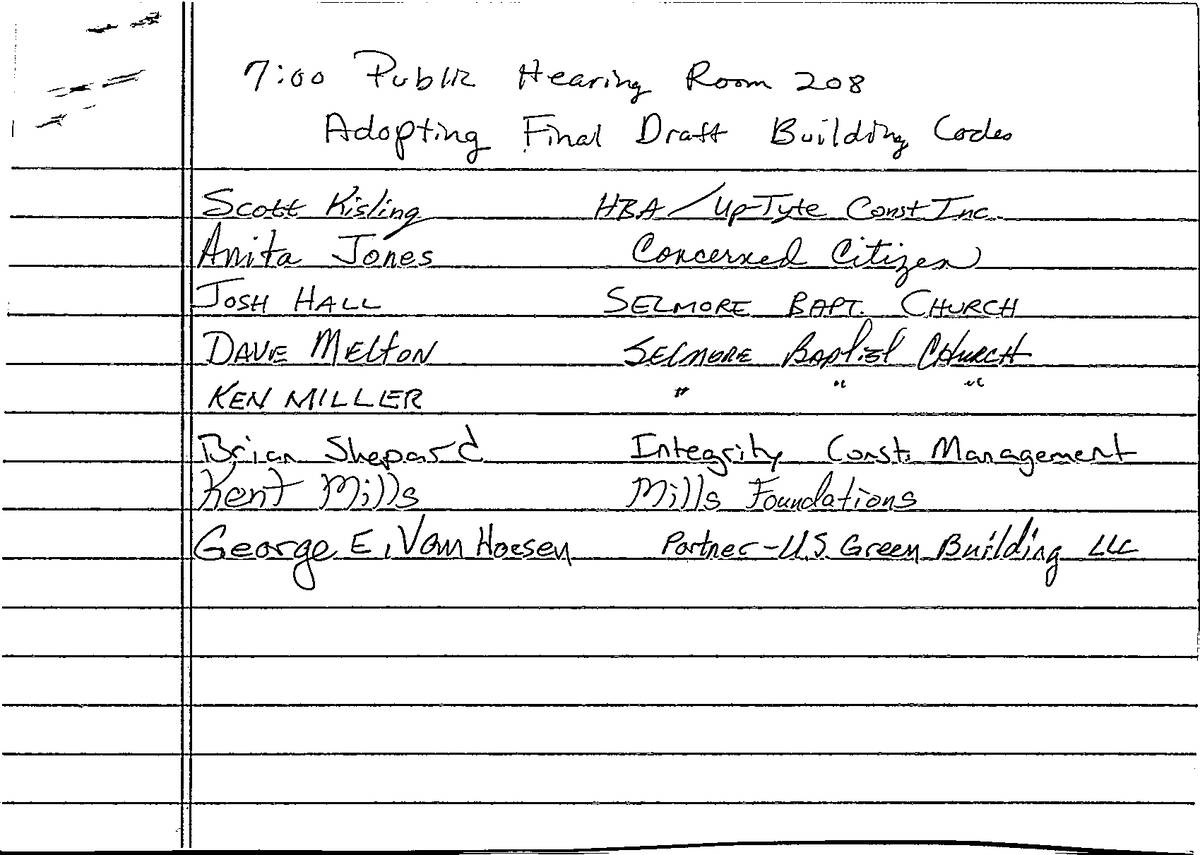 7:00 Public Hearing Room 208
Adopting Final Draft Building Codes
Scott Kisling HBA/Up-Tyte Const Inc.
Anita Jones Concerned Citizen
JOSH HALL SELMORE BAPT. CHURCH
DAVE MELTON SELMORE Baptist CHURCH
KEN MILLER " " "
Brian Shepard Integrity Const. Management
Kent Mills Mills Foundations
George E. Van Hoesen Partner-U.S. Green Building LLC